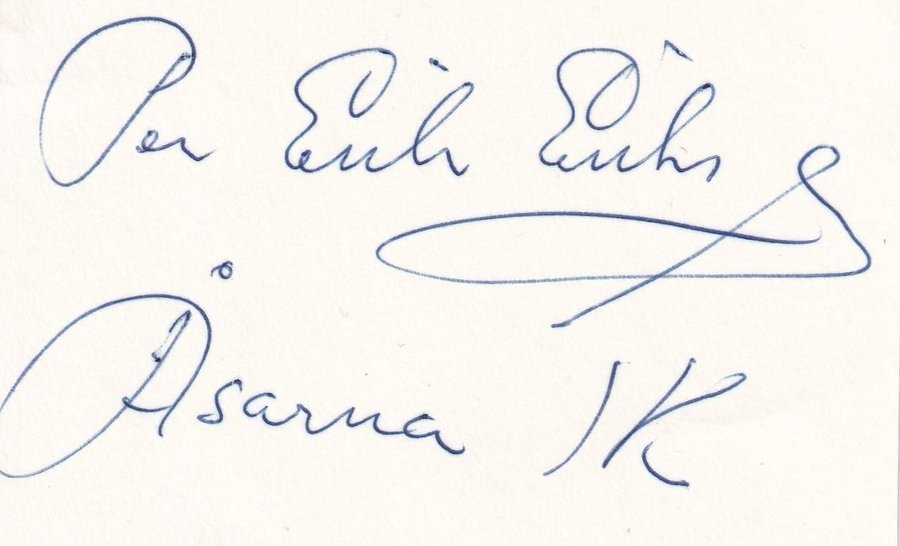 Per Erik Eriks
Åsarna IK